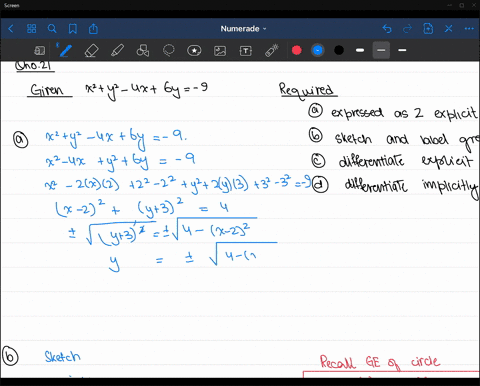 Screen
Numerade
Qno.21
Given x²+y²-4x+6y=-9
Required
(a) expressed as 2 explicit
(b) sketch and label
(c) differentiate explicit
(d) differentiate implicitly
(a) x²+y²-4x+6y=-9.
x²-4x+y²+6y=-9
x²-2(x)(2)+2²-2²+y²+2(y)(3)+3²-3²=-9
(x-2)²+(y+3)²=4
±√(y+3)²=±√4-(x-2)²
y = ±√4-(x
(b) Sketch
Recall GE of circle